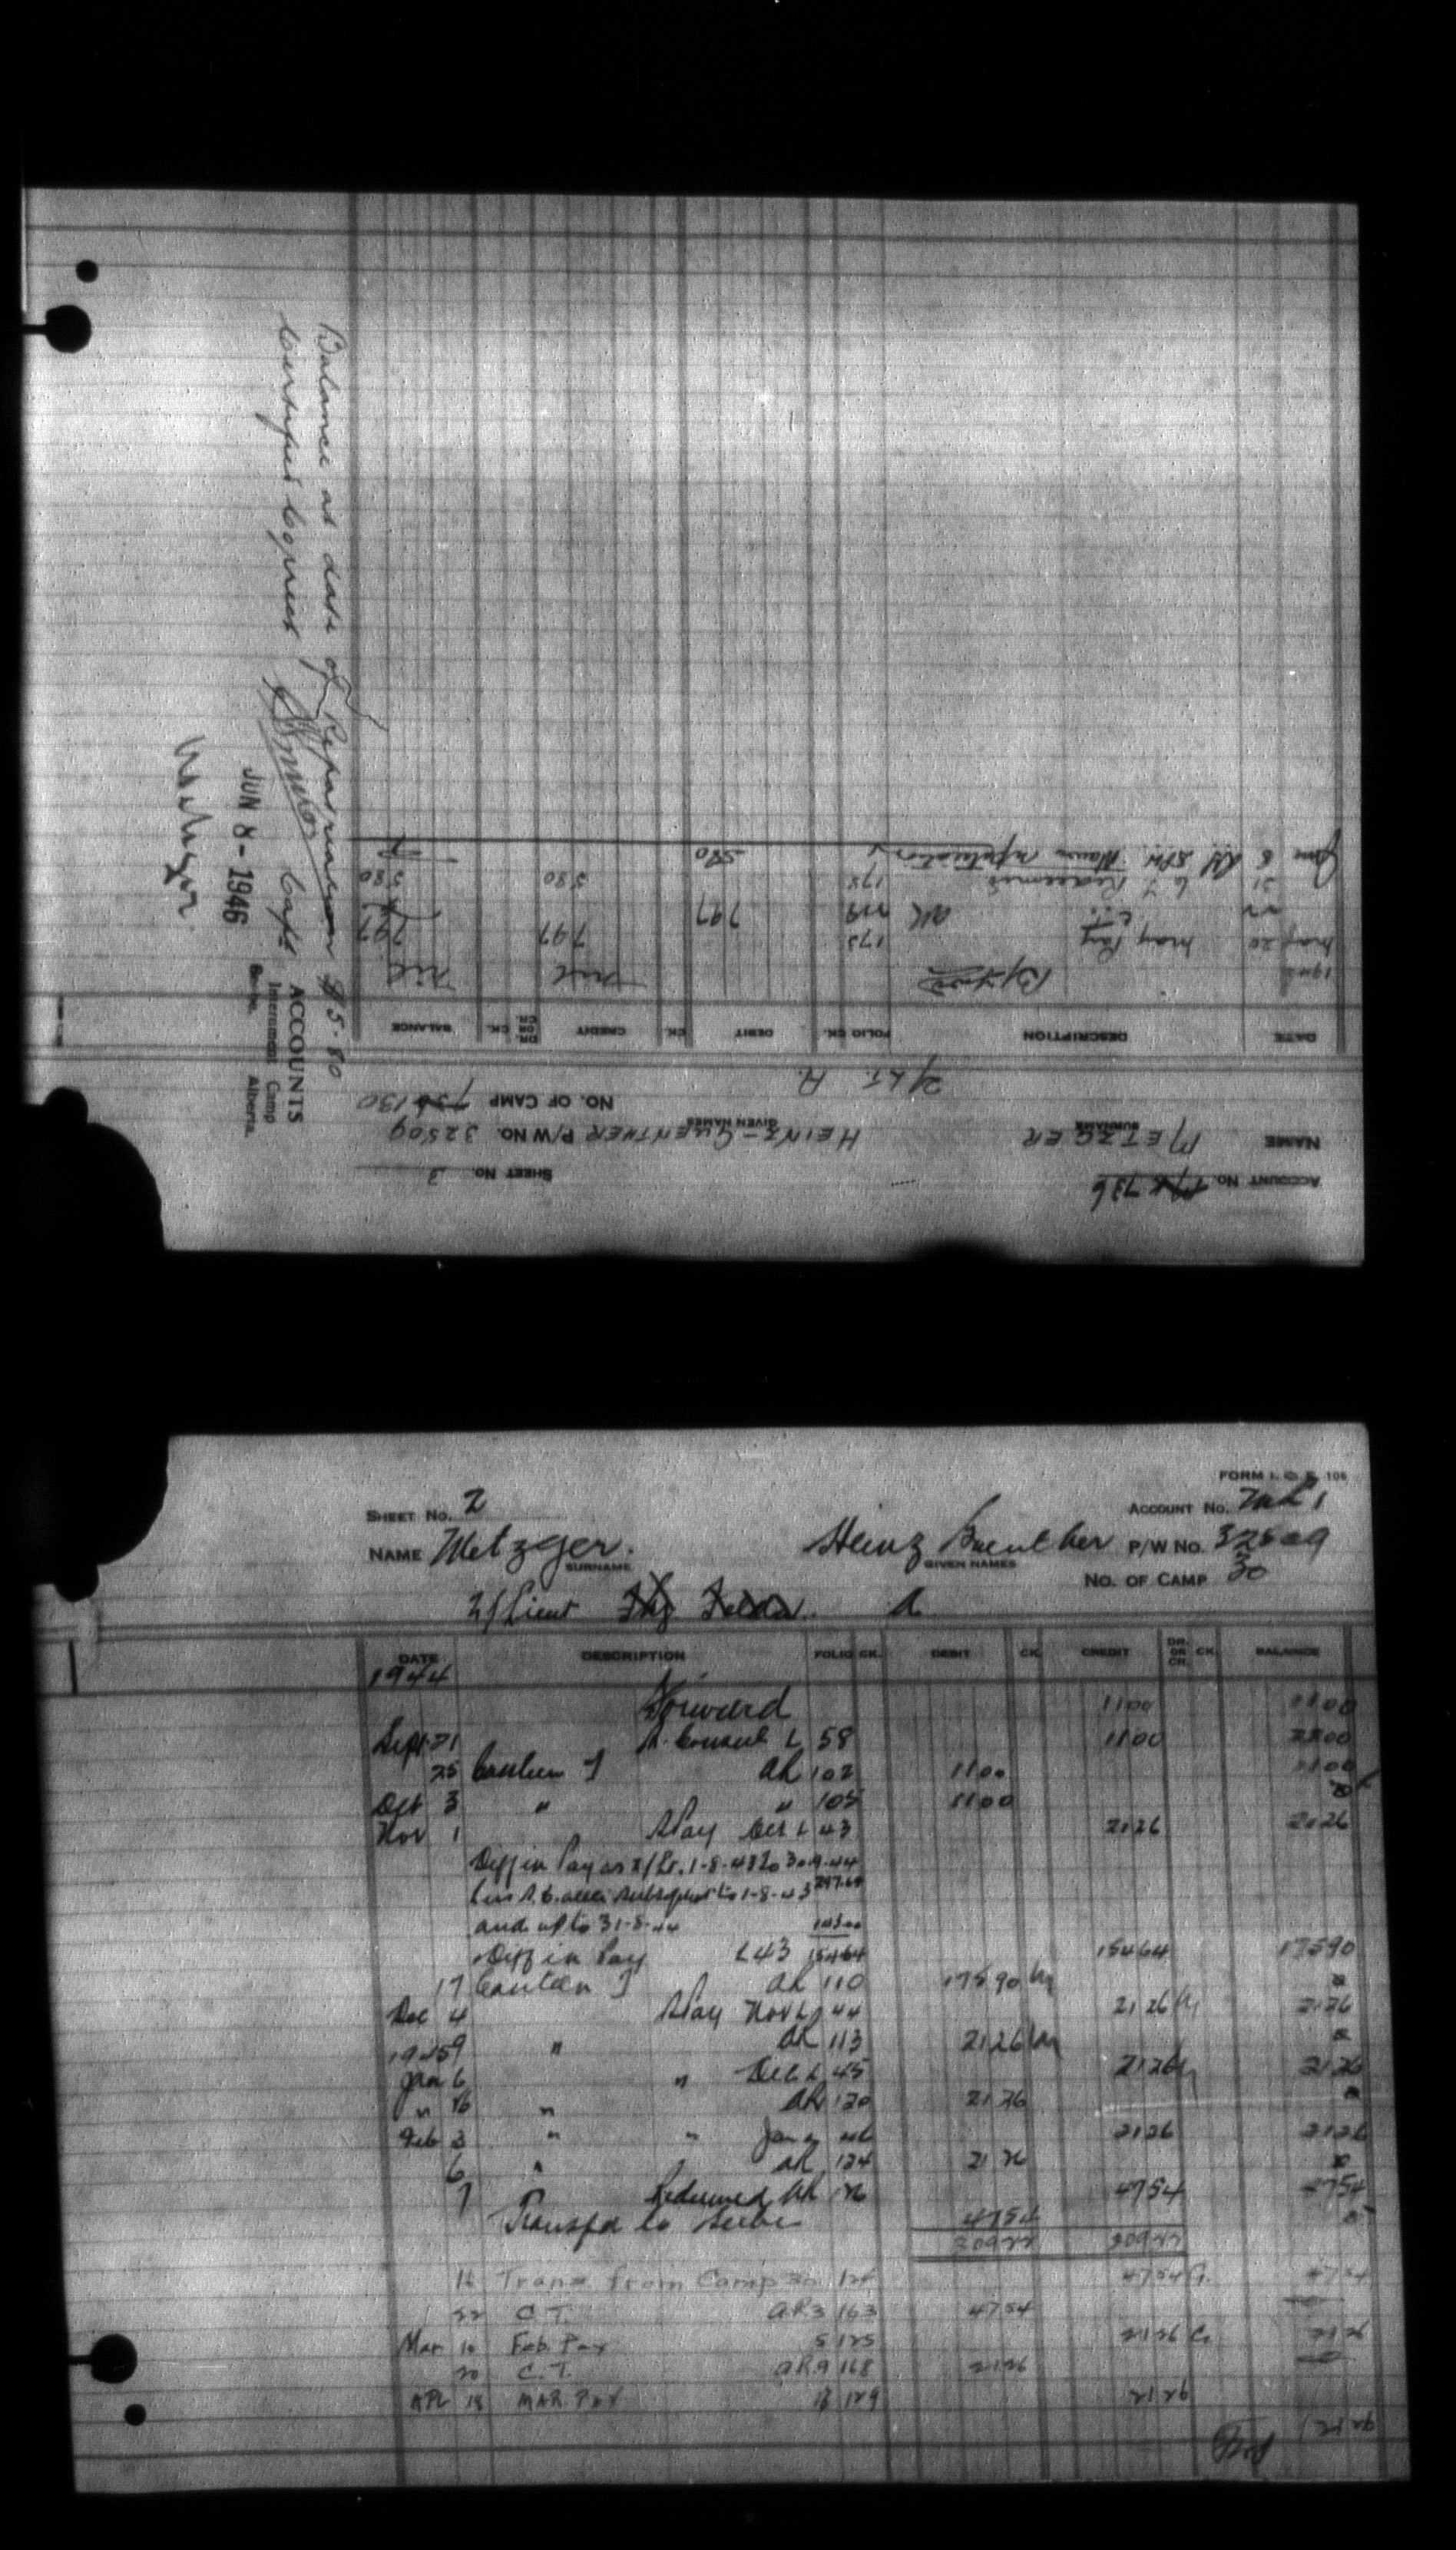 ACCOUNT No. 736
SHEET No. 3
NAME METZGER HEINZ-GUENTHER P/W No. 32509
SURNAME GIVEN NAMES
2/LT. A. No. OF CAMP 130
DATE DESCRIPTION FOLIO CK. DEBIT CK. CREDIT DR. OR CR. CK. BALANCE
1946 B/Fwd nil nil
May 20 May Pay 173 797 797
C.T. AR 797
31 C.T. Redeemed 175 580 580
June 8 580
Balance at date of Repatriation $5.80
Certified Correct Capt
ACCOUNTS
Internment Camp
Seebe, Alberta.
JUN 8 - 1946
Metzger
FORM I. O. E. 106
SHEET No. 2 ACCOUNT No.
NAME Metzger. Heinz Guenther P/W No. 32509
SURNAME GIVEN NAMES
No. OF CAMP 30
2/Lieut A
DATE DESCRIPTION FOLIO CK. DEBIT CK. CREDIT DR. OR CR. CK. BALANCE
1944
Forward 1100 1100
Sept 21 L 58 1100 2200
25 Canteen AR 102 1100 1100
Oct 3 " " 105 1100
Nov 1 Pay Oct L 43 2126 2126
Diff in Pay as 2/Lt. 1-8-43 to 30-9-44
297.64
and up to 31-8-44 143.00
Diff in Pay L43 154.64 15464 17590
17 Canteen AR 110 17590
Dec 4 Pay Nov L 44 2126 2126
9 " AR 113 2126
1945
Jan 6 " Dec L 45 2126 2126
" 16 " AR 120 2126
Feb 3 " " Jan 46 2126 2126
6 " AR 124 2126
7 " Redeemed AR 126 4754 4754
Transfd to Seebe 4754
30922 30922
16 Trans from Camp 30 124 4754 4754
22 C.T. AR3 163 4754
Mar 10 Feb. Pay 5 125 2126 2126
20 C.T. AR9 168 2126
APL 18 MAR. PAY 13 129 2126
2126